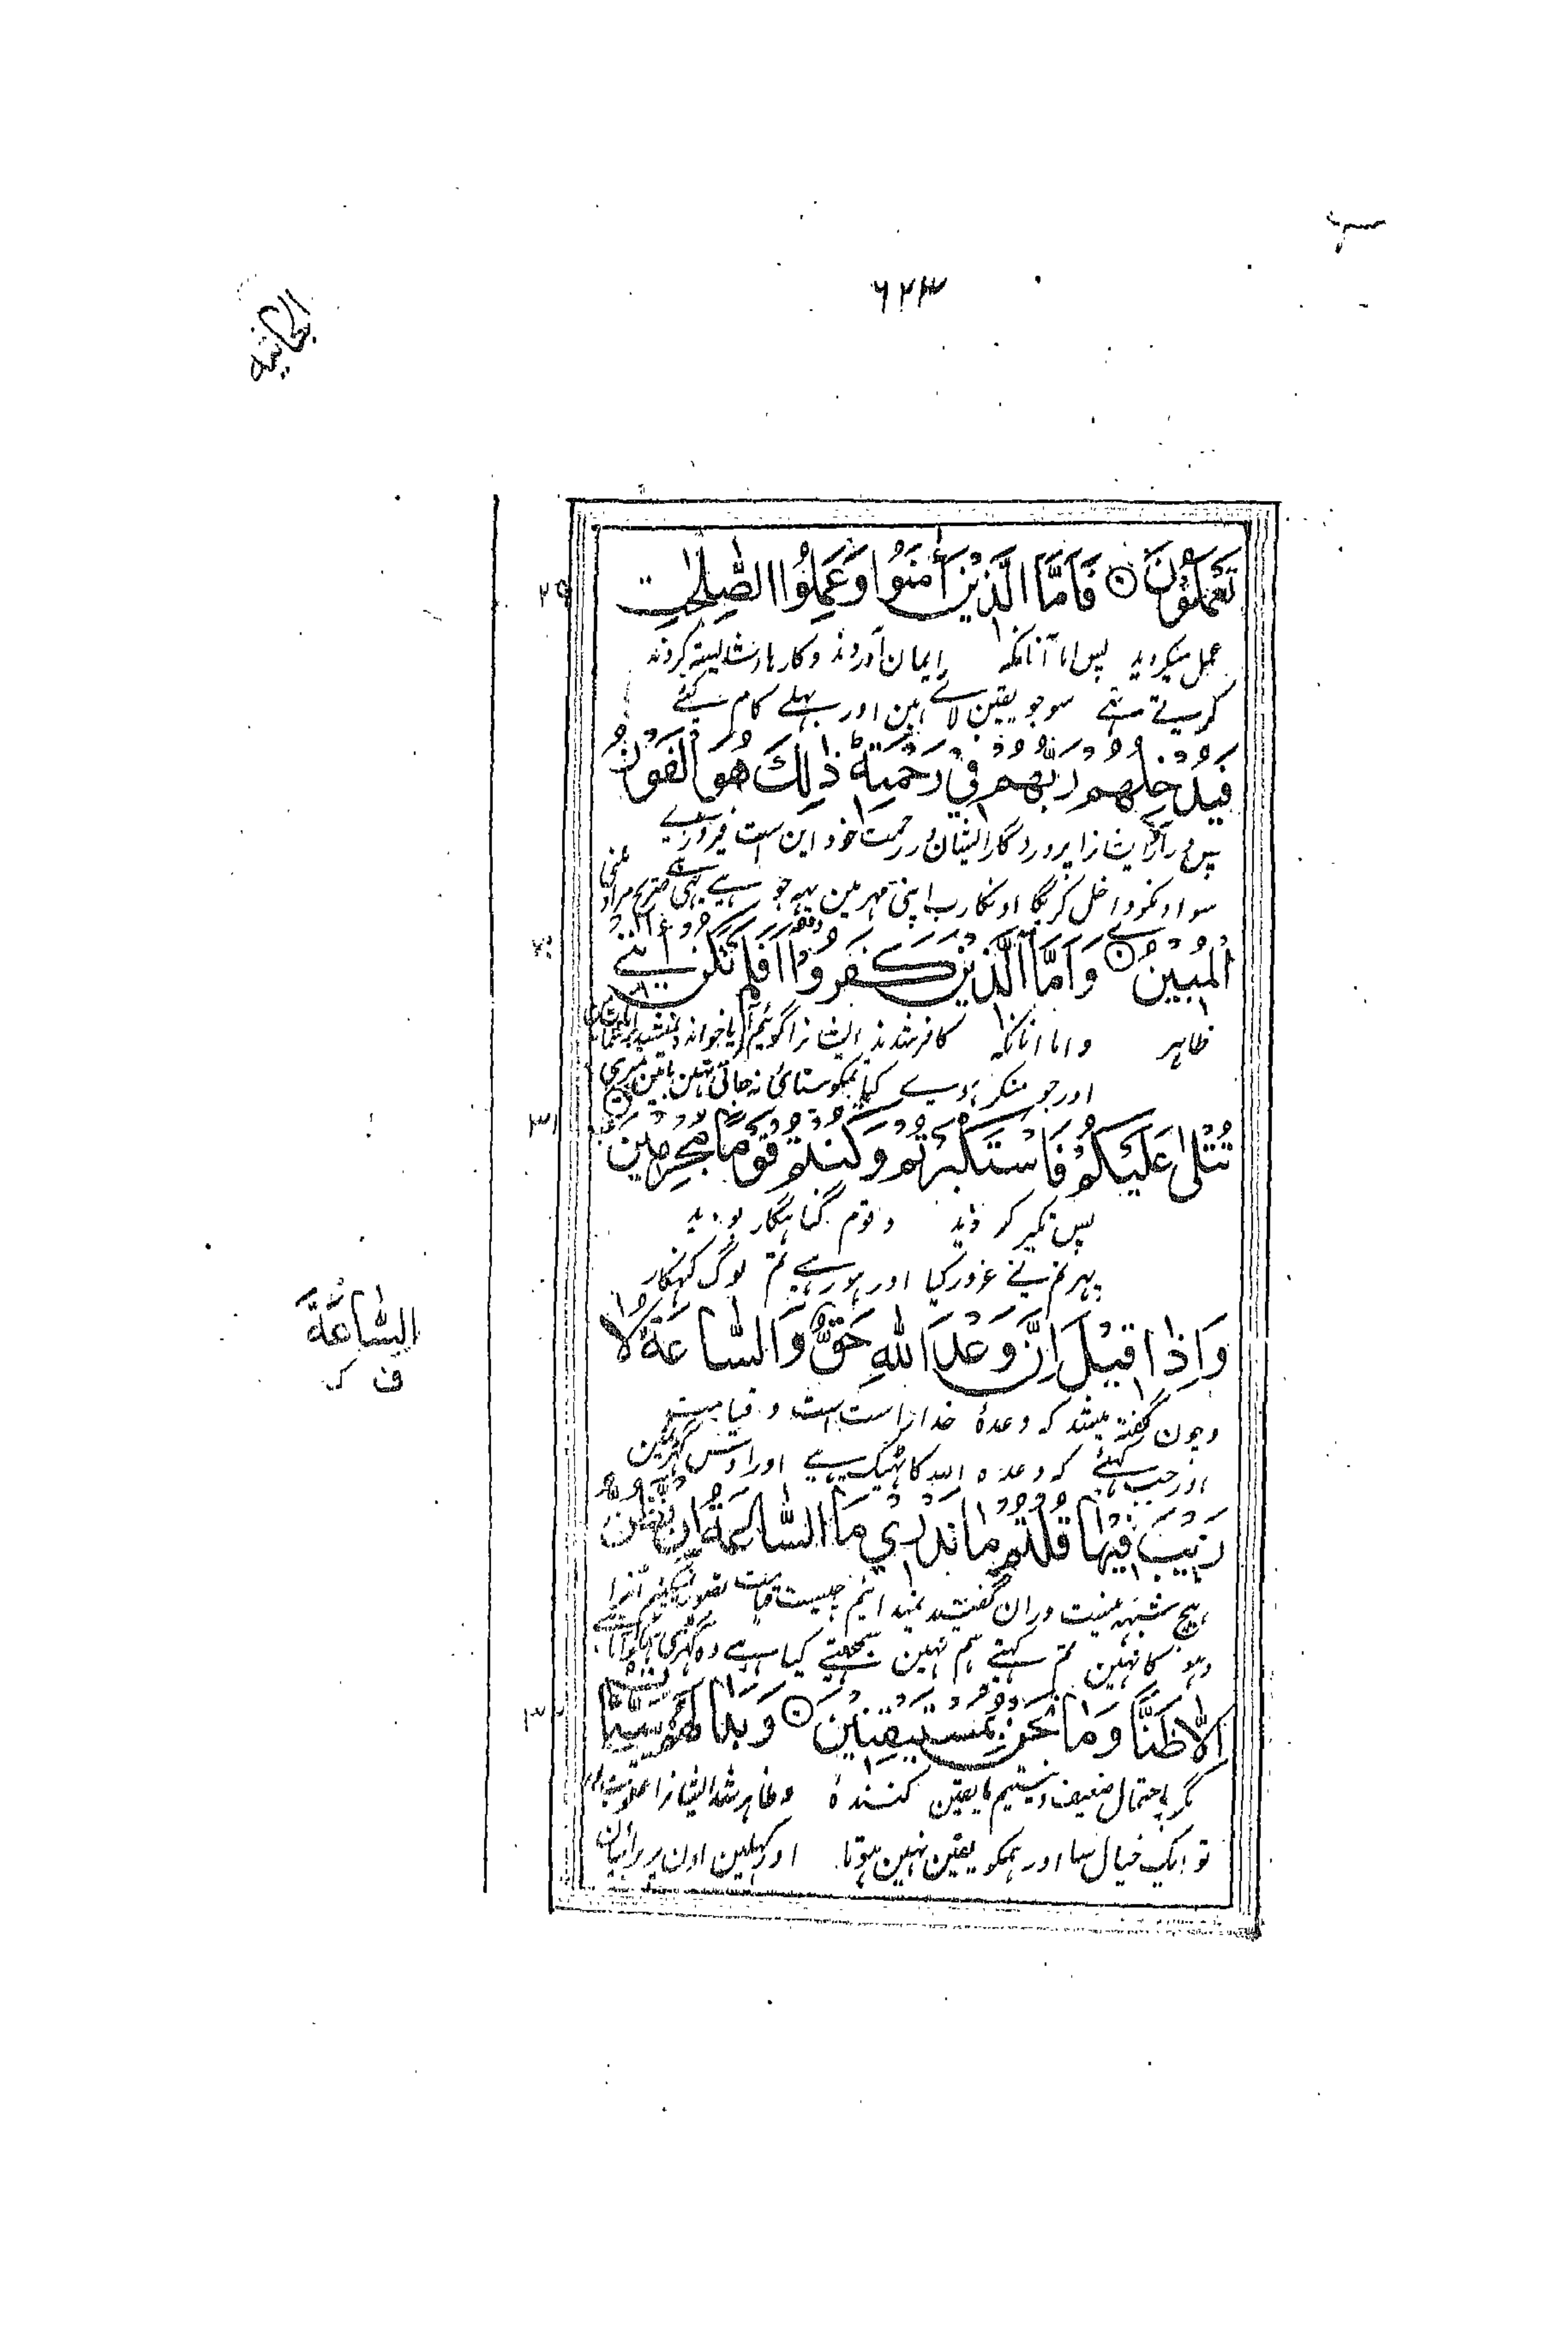 ۶۲۳
الجاثیه
تَعْمَلُوْنَ ۝ فَاَمَّا الَّذِيْنَ اٰمَنُوْا وَعَمِلُوا الصّٰلِحٰتِ
۲۹
عمل میکردید پس اما آنانکه ایمان آوردند و کارهای شایسته کردند
کرتے تہے سو جو یقین لائے ہین اور بہلے کام کئے
فَيُدْخِلُهُمْ رَبُّهُمْ فِيْ رَحْمَتِهٖ ؕ ذٰلِكَ هُوَ الْفَوْزُ
پس درآرد ایشانرا پروردگار ایشان در رحمت خود این ست فیروزے
سو اونکو داخل کریگا اونکا رب اپنی مہر مین یہہ جو ہے یہی ہے صریح مراد ملنی
الْمُبِيْنُ ۝ وَاَمَّا الَّذِيْنَ كَفَرُوْا اَفَلَمْ تَكُنْ اٰيٰتِيْ
۳۰
ظاہر و اما آنانکه کافر شدند ایشانرا گوئیم آیا خوانده نمیشد
اور جو منکر ہوے کیا تمکو سنائی نہ جاتی تہین باتین میری
تُتْلٰى عَلَيْكُمْ فَاسْتَكْبَرْتُمْ وَكُنْتُمْ قَوْمًا مُّجْرِمِيْنَ ۝
۳۱
پس تکبر کردید و قوم گناہگار بودید
پہر تم نے غرور کیا اور ہو رہے تم لوگ گنہگار
وَاِذَا قِيْلَ اِنَّ وَعْدَ اللّٰهِ حَقٌّ وَّالسَّاعَةُ لَا
السَّاعَةَ
ف ک
و چون گفته میشد که وعدۀ خدا راست است و قیامت
اور جب کہئے کہ وعدہ اللہ کا ٹہیک ہے اور اوس گہڑی مین
رَيْبَ فِيْهَا قُلْتُمْ مَّا نَدْرِيْ مَا السَّاعَةُ اِنْ نَّظُنُّ
ہیچ شبہه نیست دران گفتید نمیدانیم چیست قیامت تصور نمیکنیم آنرا
دہوکا نہین تم کہتے ہم نہین سمجہتے کیا ہے وہ گہڑی ہمکو آتا ہے
اِلَّا ظَنًّا وَّمَا نَحْنُ بِمُسْتَيْقِنِيْنَ ۝ وَبَدَا لَهُمْ سَيِّاٰتُ
۳۲
مگر باحتمال ضعیف و نیستیم ما یقین کنندہ و ظاہر شد ایشانرا
تو ایک خیال سا اور ہمکو یقین نہین ہوتا اور کہلین اون پر برائیان